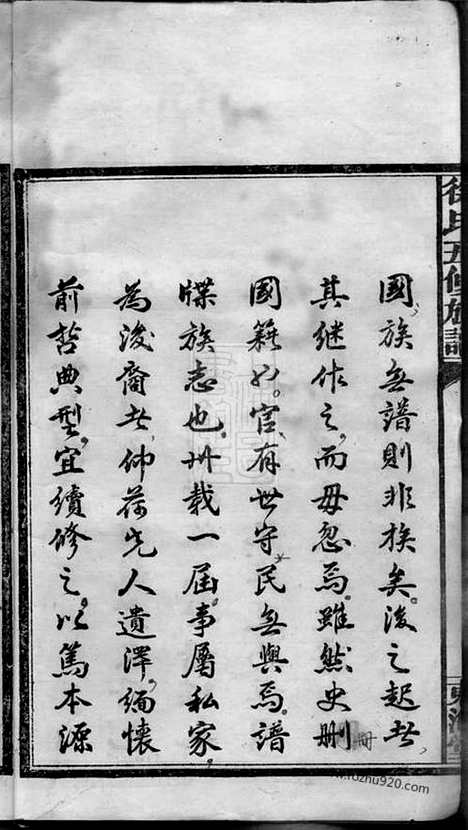 徐氏五修族譜
國族無譜則非族矣後之起者
其繼作之而毋忽焉雖然史刪
冊
國籍必官有世守民無與焉譜
牒族志也卅載一屆事屬私家
為後裔者仰荷先人遺澤緬懷
前哲典型宜續修之以篤本源
www.fozhu920.com